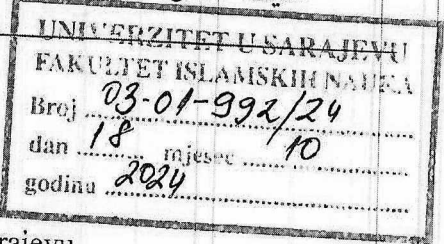 UNIVERZITET U SARAJEVU
FAKULTET ISLAMSKIH NAUKA
Broj 03-01-992/24
dan 18 mjesec 10
godinu 2024
rajevu